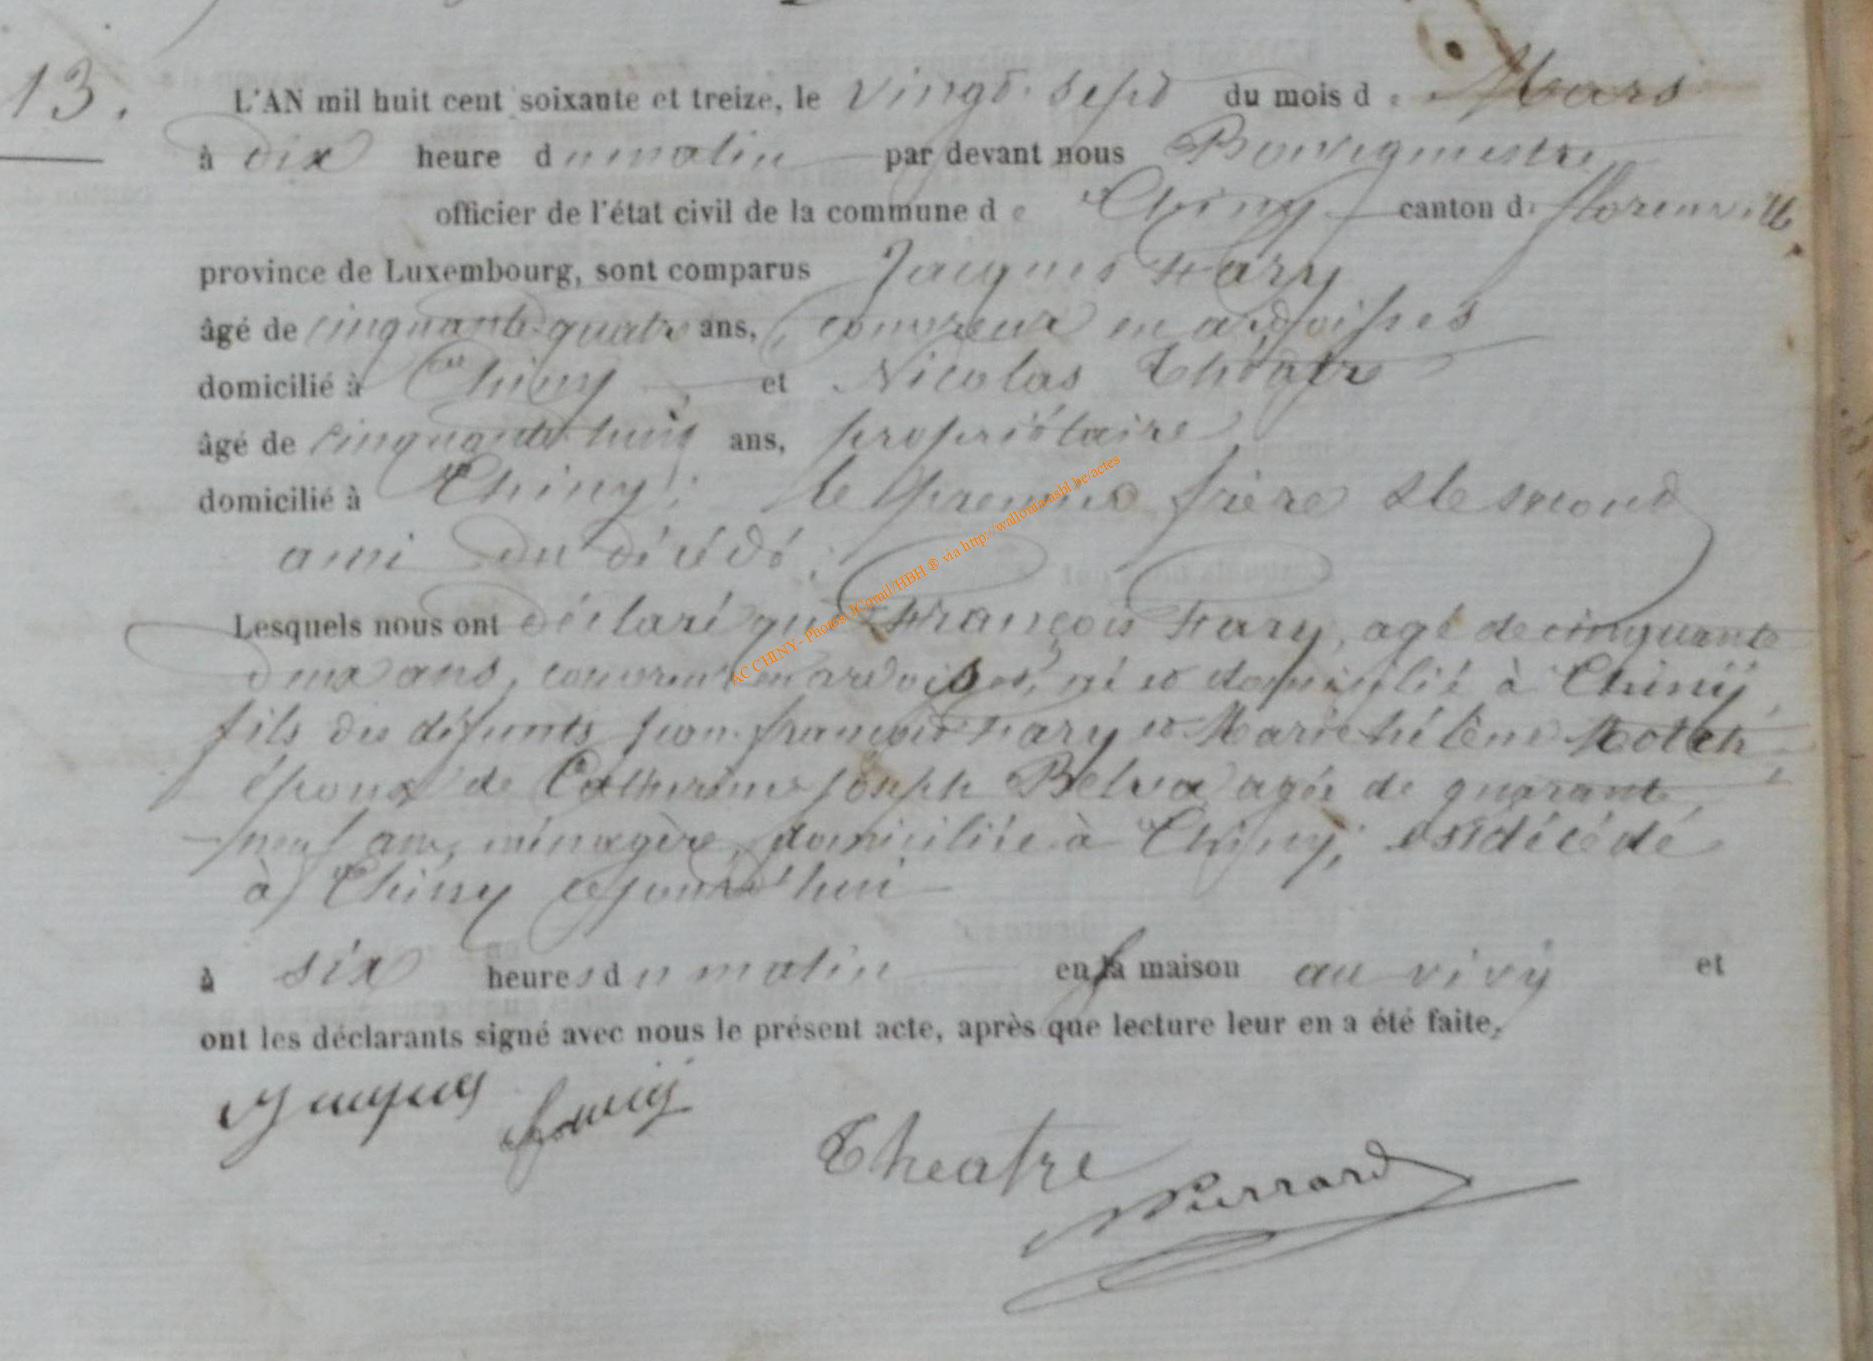 13.
L'AN mil huit cent soixante et treize, le vingt-sept du mois de Mars
à dix heure du matin par devant nous Bourgmestre
officier de l'état civil de la commune de Chiny canton de florenville
province de Luxembourg, sont comparus Jacques Fary
âgé de cinquante-quatre ans, couvreur en ardoises
domicilié à Chiny et Nicolas Théâtre
âgé de cinquante-huit ans, propriétaire
domicilié à Chiny; le premier frère & le second
ami du décédé;
Lesquels nous ont déclaré que François Fary, agé de cinquante
deux ans, couvreur en ardoises, né et domicilié à Chiny
fils des défunts Jean-françois Fary et Marie hélène
époux de Catherine Joseph Belva agée de quarante
neuf ans, ménagère, domiciliée à Chiny, est décédé
à Chiny cejourd'hui
à six heures du matin en sa maison au vivy et
ont les déclarants signé avec nous le présent acte, après que lecture leur en a été faite,
Jacques
Theatre
Pierrard
AC CHINY - Photos JCmail/HBH ® via http://wallonia-asbl.be/actes